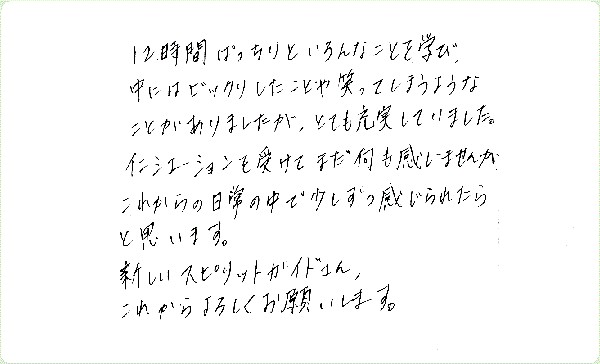 12時間ばっちりといろんなことを学び、
中にはビックリしたことや笑ってしまうような
ことがありましたが、とても充実していました。
イニシエーションを受けてまだ何も感じませんが
これからの日常の中で少しずつ感じられたら
と思います。
新しいスピリットガイドさん、
これからよろしくお願いします。